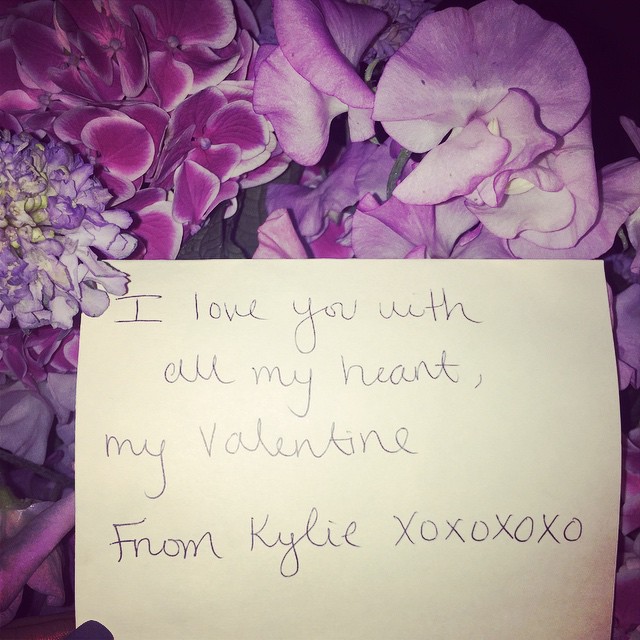 I love you with
all my heart,
my Valentine
From Kylie XOXOXOXO